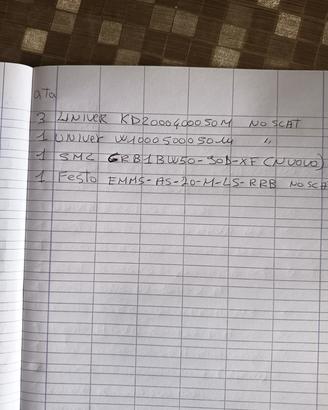 ata
3 UNIVER KD2000400050M NO SCAT
1 UNIVER W1000500050M "
1 SMC CRB1BW50-90D-XF (NUOVO)
1 FESTO EMMS-AS-70-M-LS-RRB NO SCAT